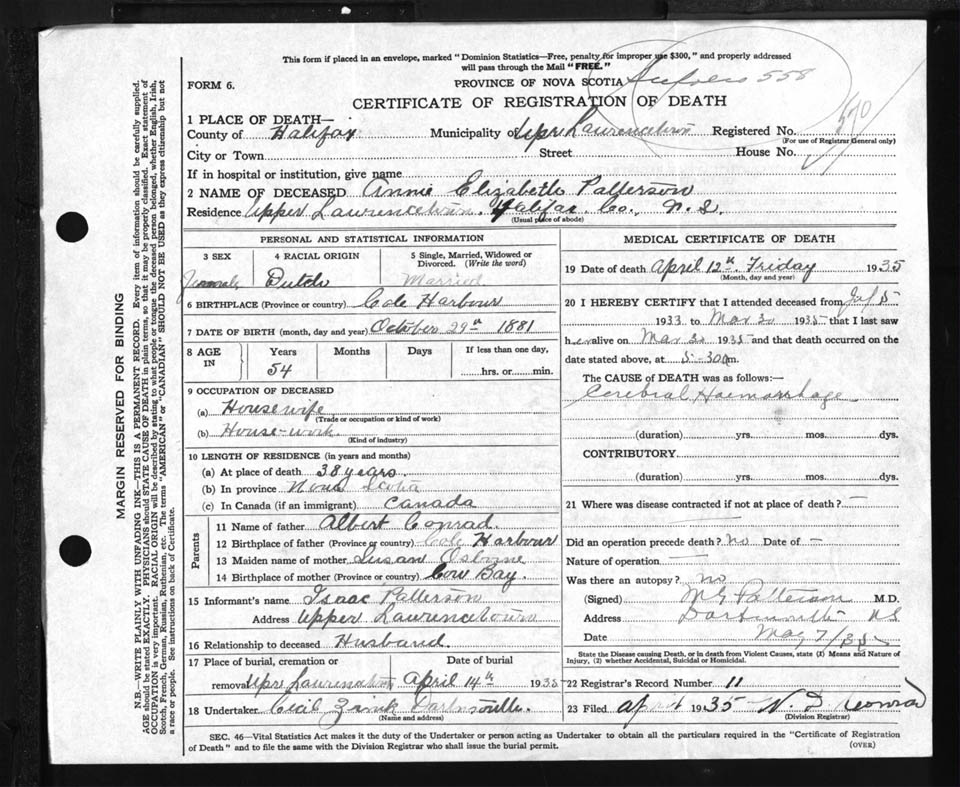 This form if placed in an envelope, marked "Dominion Statistics—Free, penalty for improper use $300," and properly addressed
will pass through the Mail "FREE."
FORM 6.
PROVINCE OF NOVA SCOTIA
558
CERTIFICATE OF REGISTRATION OF DEATH
1 PLACE OF DEATH—
County of Halifax Municipality of Upr Lawrencetown Registered No.
(For use of Registrar General only)
City or Town Street House No.
If in hospital or institution, give name
2 NAME OF DECEASED Annie Elizabeth Patterson
Residence Upper Lawrencetown. Halifax. Co., N.S.
(Usual place of abode)
PERSONAL AND STATISTICAL INFORMATION
3 SEX 4 RACIAL ORIGIN 5 Single, Married, Widowed or Divorced. (Write the word)
Female Dutch Married
6 BIRTHPLACE (Province or country) Cole Harbour
7 DATE OF BIRTH (month, day and year) October 29th 1881
8 AGE IN Years Months Days If less than one day,
54 hrs. or min.
9 OCCUPATION OF DECEASED
(a) Housewife
(Trade or occupation or kind of work)
(b) House-work
(Kind of industry)
10 LENGTH OF RESIDENCE (in years and months)
(a) At place of death 38 years.
(b) In province Nova Scotia
(c) In Canada (if an immigrant) Canada
Parents
11 Name of father Albert Conrad.
12 Birthplace of father (Province or country) Cole Harbour
13 Maiden name of mother Susan Osborne
14 Birthplace of mother (Province or country) Cow Bay.
15 Informant's name Isaac Patterson
Address Upper Lawrencetown
16 Relationship to deceased Husband.
17 Place of burial, cremation or Date of burial
removal Upr Lawrencetown April 14th 1935
18 Undertaker Cecil Zink Dartmouth.
(Name and address)
MEDICAL CERTIFICATE OF DEATH
19 Date of death April 12th. Friday 1935
(Month, day and year)
20 I HEREBY CERTIFY that I attended deceased from
1933 to Mar 30 1935 that I last saw
her alive on Mar 30 1935 and that death occurred on the
date stated above, at 5-30 a m.
The CAUSE OF DEATH was as follows:—
Cerebral Haemorrhage
(duration) yrs. mos. dys.
CONTRIBUTORY
(duration) yrs. mos. dys.
21 Where was disease contracted if not at place of death? —
Did an operation precede death? no Date of —
Nature of operation —
Was there an autopsy? no
(Signed) M.D.
Address Dartmouth NS
Date May 7/35
State the Disease causing Death, or in death from Violent Causes, state (1) Means and Nature of
Injury, (2) whether Accidental, Suicidal or Homicidal.
22 Registrar's Record Number 11
23 Filed April 1935 Conrad
(Division Registrar)
SEC. 46—Vital Statistics Act makes it the duty of the Undertaker or person acting as Undertaker to obtain all the particulars required in the "Certificate of Registration
of Death" and to file the same with the Division Registrar who shall issue the burial permit.
(OVER)
MARGIN RESERVED FOR BINDING
N.B.—WRITE PLAINLY WITH UNFADING INK—THIS IS A PERMANENT RECORD. Every item of information should be carefully supplied.
AGE should be stated EXACTLY. PHYSICIANS should STATE CAUSE OF DEATH in plain terms, so that it may be properly classified. Exact statement of
OCCUPATION is very important. RACIAL ORIGIN will be described by stating to what people or tongue the deceased person belonged, whether English, Irish,
Scotch, French, German, Russian, Ruthenian, etc. The terms "AMERICAN" or "CANADIAN" SHOULD NOT BE USED as they express citizenship but not
a race or people. See instructions on back of Certificate.